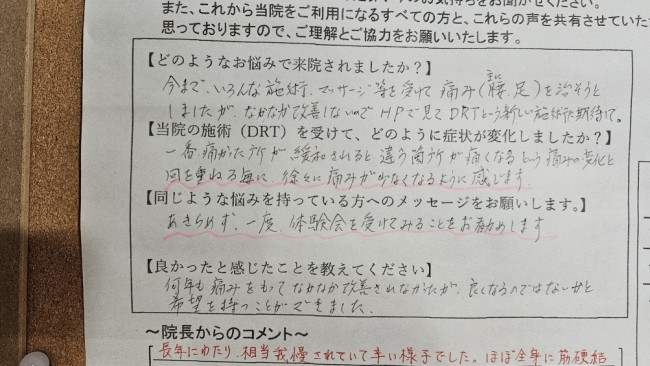 また、これから当院をご利用になるすべての方と、これらの声を共有させていた
思っておりますので、ご理解とご協力をお願いいたします。
【どのようなお悩みで来院されましたか？】
今まで、いろんな施術、マッサージ等を受けて痛み(腰、足)を治そうと
しましたが、なかなか改善しないので HPで見てDRTという新しい施術に期待して。
【当院の施術（DRT）を受けて、どのように症状が変化しましたか？】
一番痛かった所が緩和されると違う箇所が痛くなるという痛みの変化と
回を重ねる毎に、徐々に痛みが少なくなるように感じます。
【同じような悩みを持っている方へのメッセージをお願いします。】
あきらめず、一度、体験会を受けてみることをお勧めします
【良かったと感じたことを教えてください】
何年も痛みをもってなかなか改善されなかったが、良くなるのではないかと
希望を持つことができました。
～院長からのコメント～
長年にわたり、相当我慢されていて辛い様子でした。ほぼ全身に筋硬結